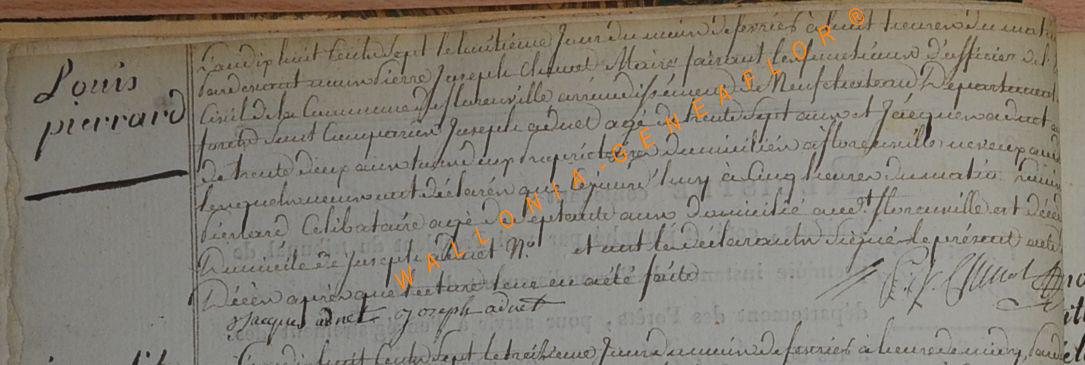 Louis
pierrard
L'an dix huit cents sept le huitieme Jour du mois de fevrier à huit heures du matin
pardevant nous Pierre Joseph Maire faisant les fonctions d'officier de l'
Civil de la Commune de florenville arrondissement de Neufchateau Departement
forets sont Comparus Joseph adnet agé de trente sept ans et Jacques adnet
de trente deux ans tous deux proprietaires domiciliés à florenville
lesquels nous ont déclarés que le jour d'huy à Cinq heures du matin
pierrard Celibataire agé de septante ans domicilié audt florenville est décédé
Domicile de Joseph adnet No et ont les declarants signés le présent acte
Décès après que lecture leur en a été faite
Jacques adnet Joseph adnet
L'an dix huit Cents sept le treizieme Jour du mois de fevrier à heure de midy
WALLONIA-GENEAFLOR®